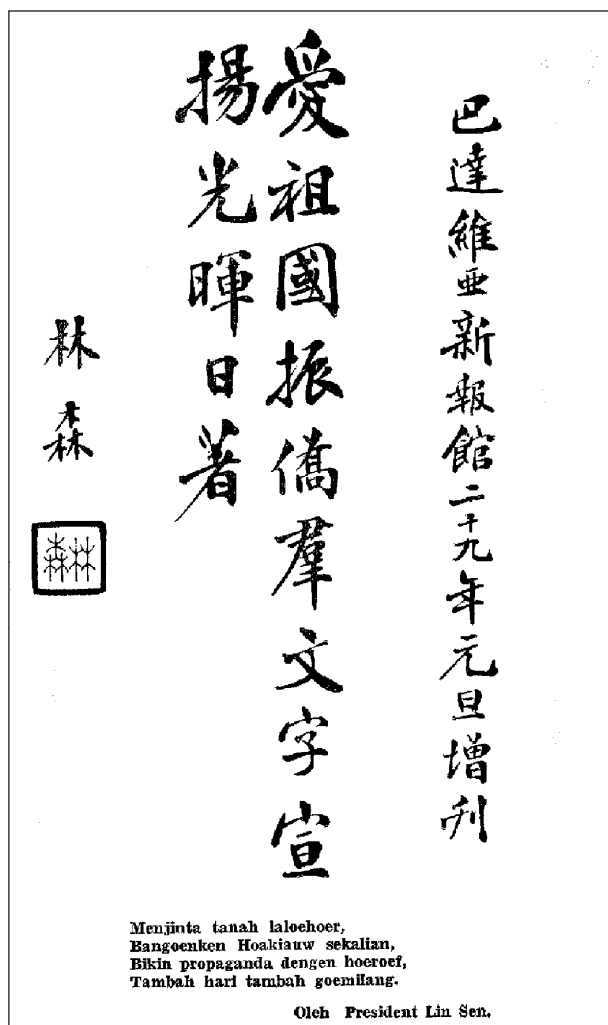 巴達維亞新報館二十九年元旦增刊
愛祖國振僑羣文字宣
揚光暉日著
林森
林森
Menjinta tanah laloehoer,
Bangoenken Hoakiauw sekalian,
Bikin propaganda dengen hoeroef,
Tambah hari tambah goemilang.
Oleh President Lin Sen.